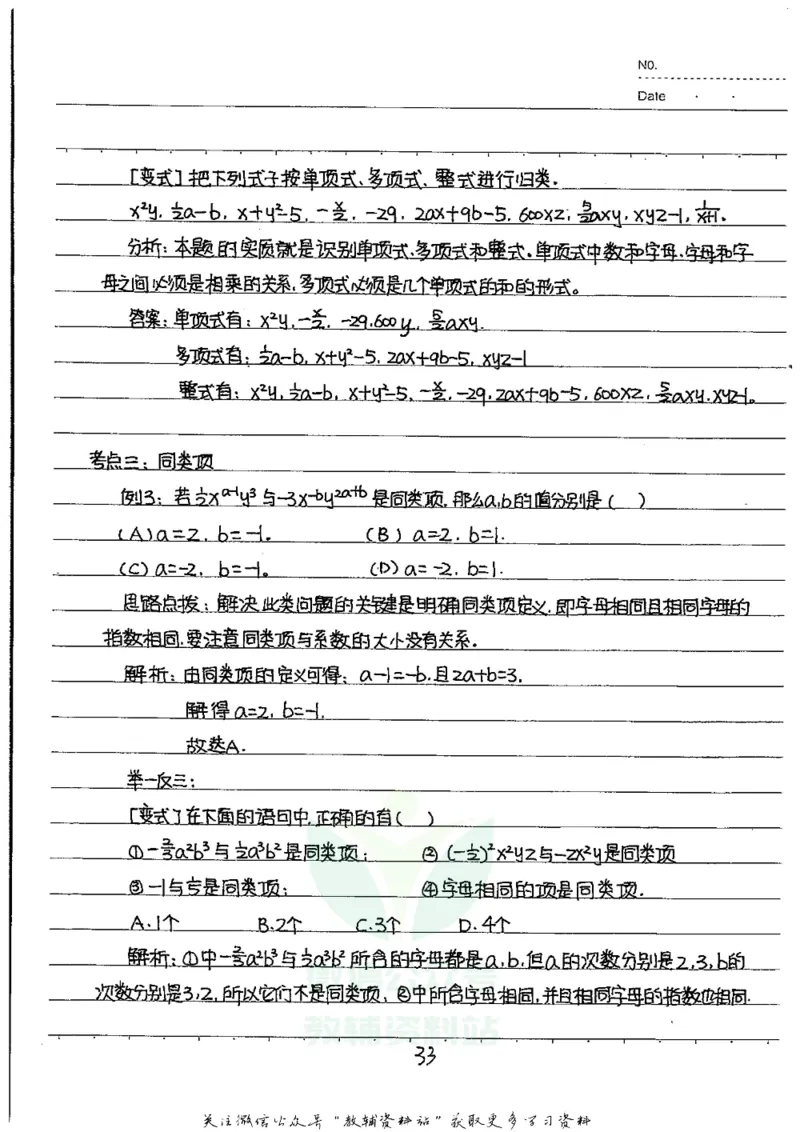 NO.
Date
[变式] 把下列式子按单项式、多项式、整式进行归类.
x²y, ½a-b, x+y²-5, -x/2, -29, 2ax+9b-5, 600xz, 5/2axy, xyz-1, 1/x+1.
分析: 本题的实质就是识别单项式、多项式和整式. 单项式中数和字母、字母和字
母之间必须是相乘的关系, 多项式必须是几个单项式的和的形式。
答案: 单项式有: x²y, -x/2, -29, 600y, 5/2axy.
多项式有: ½a-b, x+y²-5, 2ax+9b-5, xyz-1
整式有: x²y, ½a-b, x+y²-5, -x/2, -29, 2ax+9b-5, 600xz, 5/2axy, xyz-1。
考点三: 同类项
例3: 若½xᵃ⁻¹y³与-3x⁻ᵇy²ᵃ⁺ᵇ是同类项, 那么a,b的值分别是( )
(A) a=2, b=-1。 (B) a=2, b=1.
(C) a=-2, b=-1。 (D) a=-2, b=1.
思路点拨: 解决此类问题的关键是明确同类项定义, 即字母相同且相同字母的
指数相同, 要注意同类项与系数的大小没有关系.
解析: 由同类项的定义可得: a-1=-b, 且2a+b=3,
解得a=2, b=-1,
故选A.
举一反三:
[变式] 在下面的语句中, 正确的有( )
①-⅔a²b³与½a³b²是同类项; ②(-½)²x²yz与-zx²y是同类项
③-1与⅕是同类项; ④字母相同的项是同类项.
A.1个 B.2个 C.3个 D.4个
解析: ①中-⅔a²b³与½a³b²所含的字母都是a,b, 但a的次数分别是2,3, b的
次数分别是3,2, 所以它们不是同类项, ②中所含字母相同, 并且相同字母的指数也相同.
微信公众号
教辅资料站
33
关注微信公众号“教辅资料站”获取更多学习资料